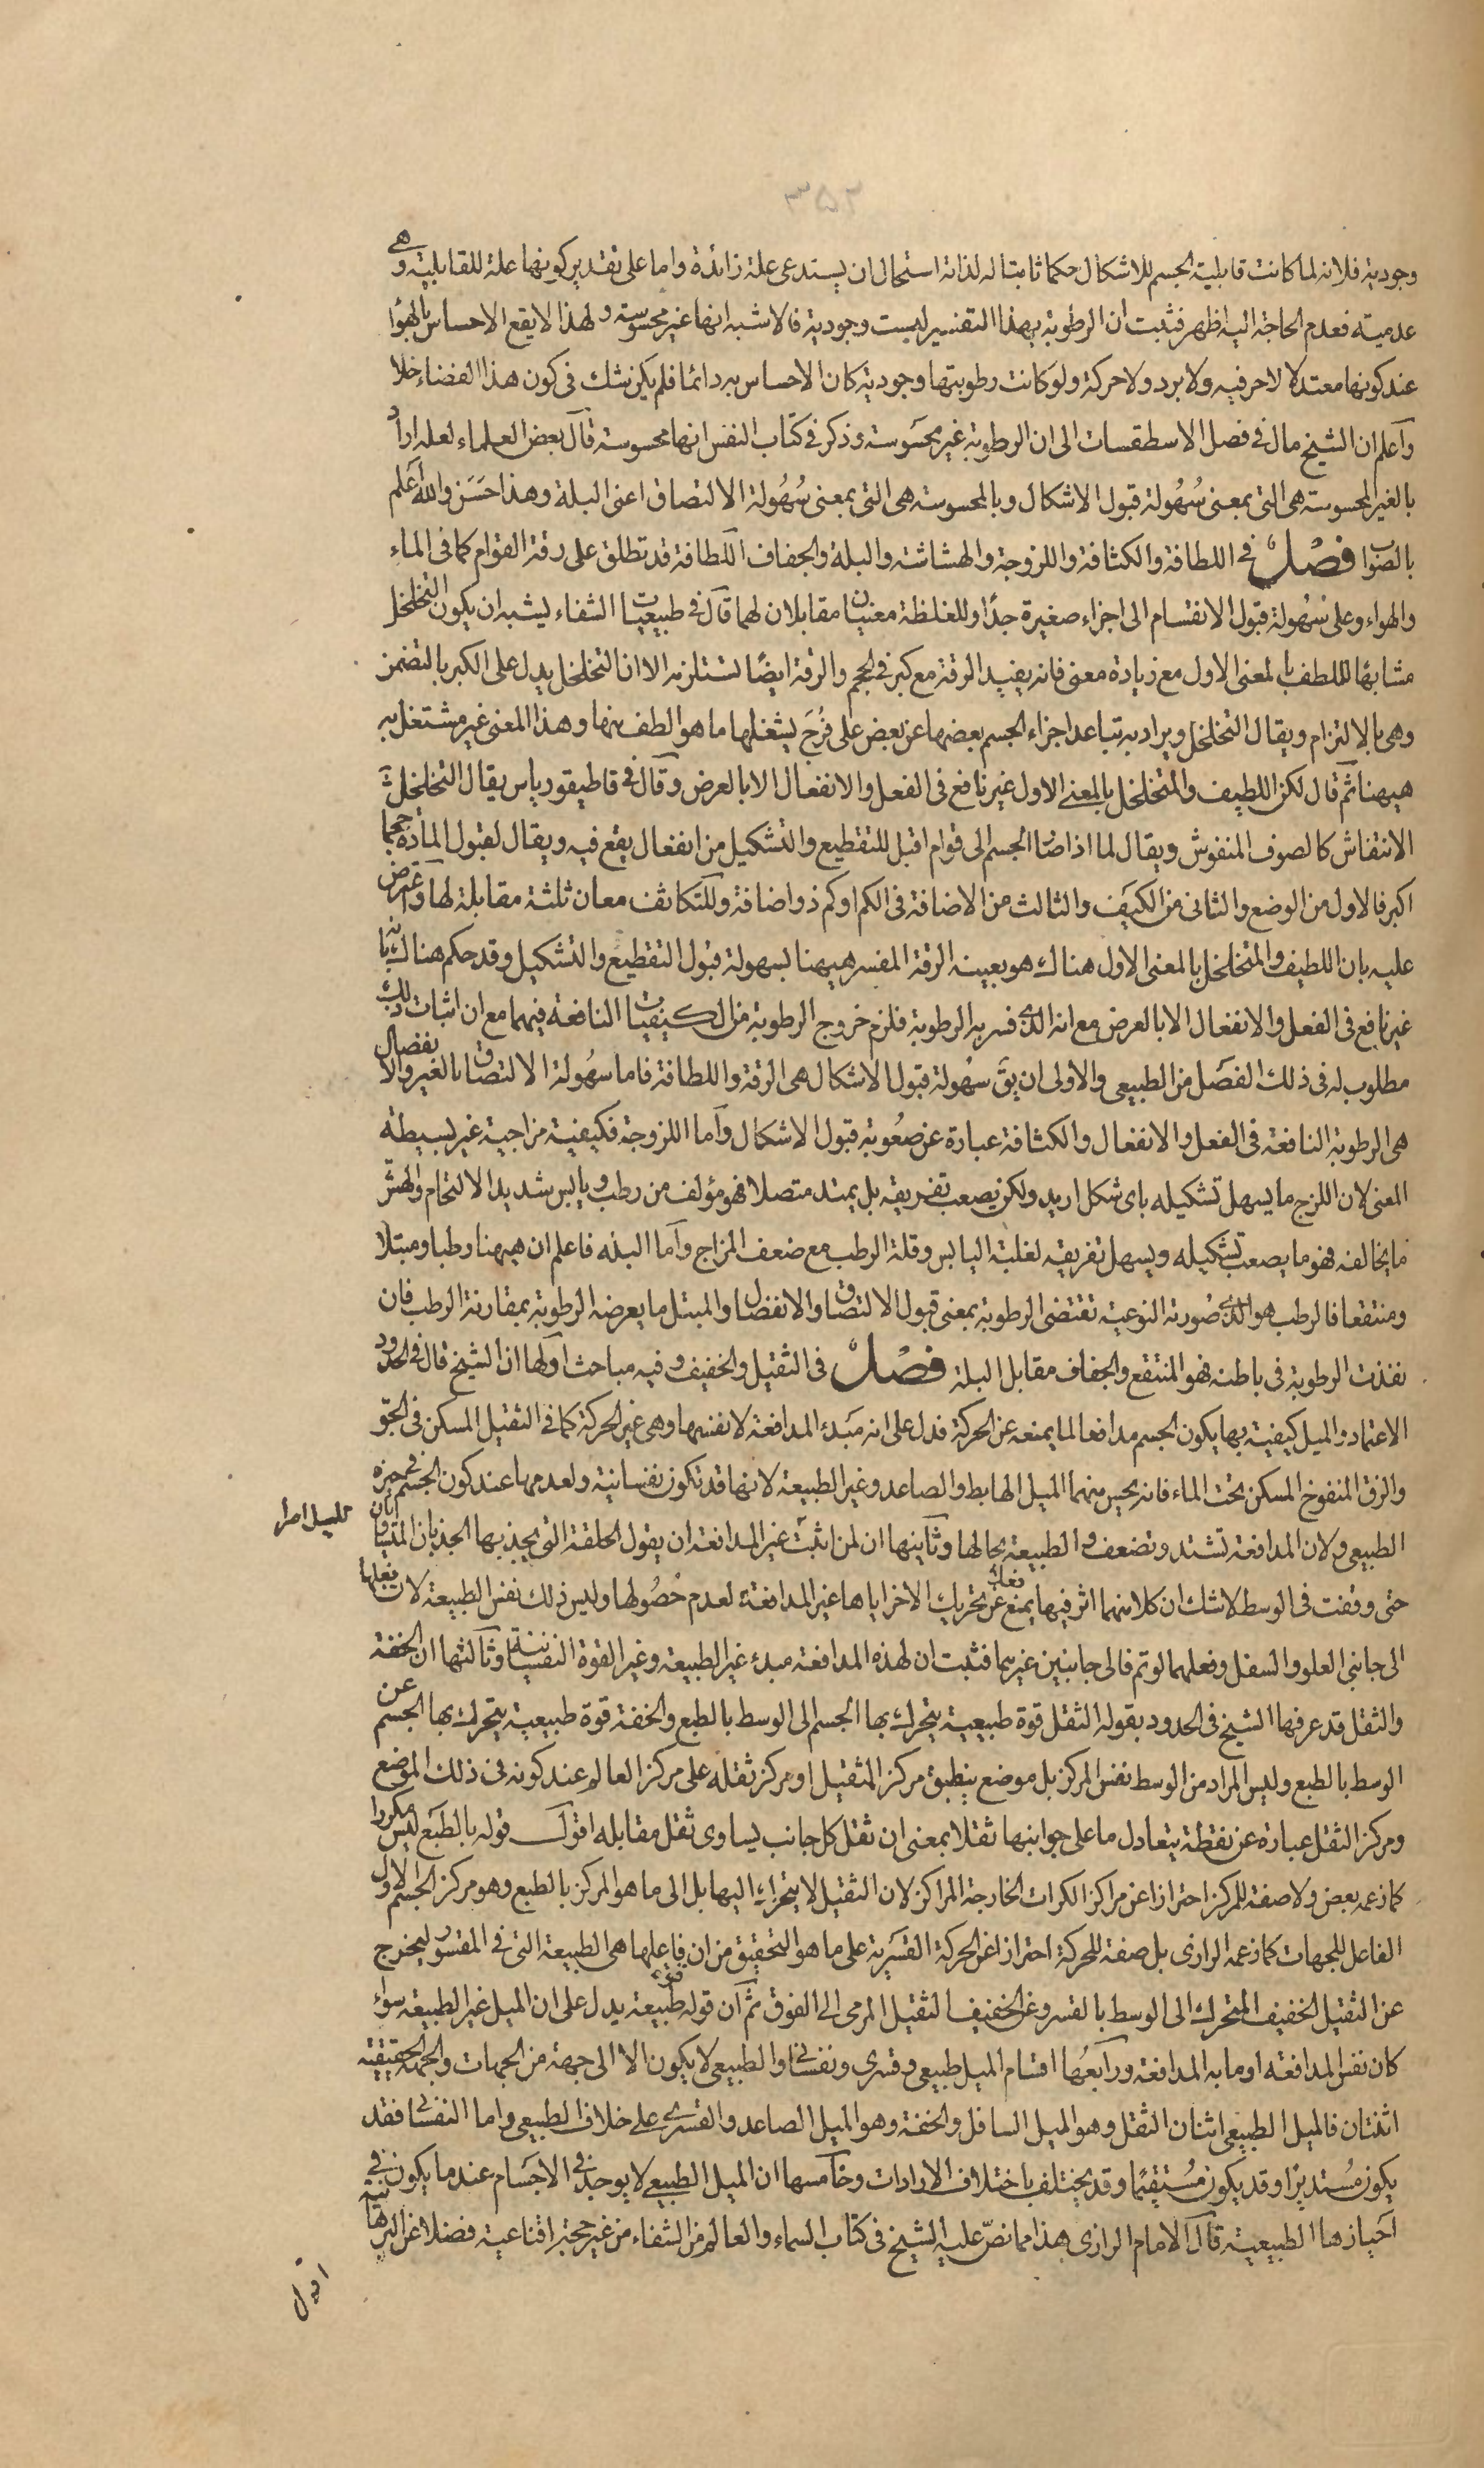 وجودية فلانه لما كانت قابلية الجسم للاشكال حكما ثابتا له لذاته استحال ان يستدعى علة زائدة واما على تقدير كونها علة للقابلية وهى
عدمية فعدم الحاجة اليه اظهر فثبت ان الرطوبة بهذا التفسير ليست وجودية فالاشبه انها غير محسوسة ولهذا لا يقع الاحساس بالهواء
عند كونها معتدلا لا حر فيه ولا برد ولا حركة ولو كانت رطوبتها وجودية كان الاحساس به دائما فلم يكن نشك فى كون هذا الفضاء خلا
واعلم ان الشيخ مال فى فصل الاسطقسات الى ان الرطوبة غير محسوسة وذكر فى كتاب النفس انها محسوسة قال بعض العلماء لعله اراد
بالغير المحسوسة هى التى بمعنى سُهُولة قبول الاشكال وبالمحسوسة هى التى بمعنى سُهُولة الالتصاق اعنى البلة وهذا حَسَن والله اعلم
بالصواب فصْل فى اللطافة والكثافة واللزوجة والهشاشة والبلة والجفاف اللطافة قد تطلق على رقة القوام كما فى الماء
والهواء وعلى سُهُولة قبول الانقسام الى اجزاء صغيرة جدًا وللغلظة معنيان مقابلان لهما قال فى طبيعيات الشفاء يشبه ان يكون التخلخل
مشابهًا لللطف بالمعنى الاول مع زيادة معنى فانه يفيد الرقة مع كبر فى الحجم والرقة ايضًا تستلزمه الا ان التخلخل يدل على الكبر بالتضمن
وهى بالالتزام ويقال التخلخل ويراد به تباعد اجزاء الجسم بعضها عن بعض على فُرَج يشغلها ما هو الطف منها وهذا المعنى غير مشتغل به
هيهنا ثم قال لكن اللطيف والمتخلخل بالمعنى الاول غير نافع فى الفعل والانفعال الا بالعرض وقال فى قاطيقورياس يقال التخلخل
الانتفاش كالصوف المنفوش ويقال لما اذا صار الجسم الى قوام اقبل للتقطيع والتشكيل من انفعال يقع فيه ويقال لقبول المادة حجما
اكبر فالاول من الوضع والثانى من الكيَف والثالث من الاضافة فى الكم او كم ذو اضافة وللتكاثف معان ثلثة مقابلة لها واعترض
عليه بان اللطيف والمتخلخل بالمعنى الاول هناك هو بعينه الرقة المفسر هيهنا بسهولة قبول التقطيع والتشكيل وقد حكم هناك بانه
غير نافع فى الفعل والانفعال الا بالعرض مع انه الذى فسر به الرطوبة فلزم خروج الرطوبة من الكيفيات النافعة فيهما مع ان اثبات ذلك
مطلوب له فى ذلك الفصَل من الطبيعى والاولى ان يق سهُولة قبول الاشكال هى الرقة واللطافة فاما سهُولة الالتصاق بالغير والانفصال
هى الرطوبة النافعة فى الفعل والانفعال والكثافة عبارة عن صعُوبة قبول الاشكال واما اللزوجة فكيفية مزاجية غير بسيطة
المعنى لان اللزج ما يسهل تشكيله باى شكل اريد ولكن يصعب تفريقه بل يمتد متصلا فهو مؤلف من رطب ويابس شديد الالتحام والهش
ما يخالفه فهو ما يصعب تشكيله ويسهل تفريقه لغلبة اليابس وقلة الرطب مع ضعف المزاج واما البلة فاعلم ان هيهنا رطبا ومبتلا
ومنتقعا فالرطب هو الذى صُورته النوعية تقتضى الرطوبة بمعنى قبول الالتصاق والانفصال والمبتل ما يعرضه الرطوبة بمقارنة الرطب فان
نفذت الرطوبة فى باطنه فهو المنتقع والجفاف مقابل البلة فصْل فى الثقيل والخفيف وفيه مباحث اولها ان الشيخ قال فى الحدود
الاعتماد والميل كيفية بها يكون الجسم مدافعا لما يمنعه عن الحركة فدل على انه مَبدء المدافعة لا نفسها وهى غير الحركة كما فى الثقيل المسكن فى الجوّ
والزق المنفوخ المسكن تحت الماء فانه يحس منهما الميل الهابط والصاعد وغير الطبيعة لانها قد تكون نفسانية ولعدمها عند كون الجسم فى حيزه
الطبيعى ولان المدافعة تشتد وتضعف والطبيعة بحالها وثانيها ان لمن اثبت غير المدافعة ان يقول الحلقة التى يجذبها الجذبان المتساويان
حتى وقفت فى الوسط لا شك ان كلا منهما اثر فيها يمنع عن تحريك الاخر اياها غير المدافعة لعدم حُصُولها وليس ذلك نفس الطبيعة لان فعلها
الى جانبى العلو والسفل وفعلهما لو تم فالى جانبين غيرهما فثبت ان لهذه المدافعة مبدء غير الطبيعة وغير القوة النفسانية وثالثها ان الخفة
والثقل قد عرفها الشيخ فى الحدود بقوله الثقل قوة طبيعية يتحرك بها الجسم الى الوسط بالطبع والخفة قوة طبيعية يتحرك بها الجسم عن
الوسط بالطبع وليس المراد من الوسط نفس المركز بل موضع ينطبق مركز الثقيل او مركز ثقله على مركز العالم عند كونه فى ذلك الموضع
ومركز الثقل عبارة عن نقطة يتعادل ما على جوانبها ثقلا بمعنى ان ثقل كل جانب يساوى ثقل مقابله اقول قوله بالطبَع ليس مكررا
كما زعمه بعض ولا صفة للمركز احترازا عن مراكز الكرات الخارجة المراكز لان الثقيل لا يتحرك اليها بل الى ما هو المركز بالطبع وهو مركز الجسم الاول
الفاعل للجهات كما زعمه الرازى بل صفة للحركة احترازا عن الحركة القسَرية على ما هو التحقيق من ان فاعلها هى الطبيعة التى فى المقسُور ليخرج
عن الثقيل الخفيف المتحرك الى الوسط بالقسر وعن الخفيف الثقيل المرمى الى الفوق ثم ان قوله قوة طبيعة يدل على ان الميل غير الطبيعة سواء
كان نفس المدافعة او ما به المدافعة ورابعُها اقسام الميل طبيعى وقسرى ونفسانى والطبيعى لا يكون الا الى جهة من الجهات والجهة الحقيقية
اثنتان فالميل الطبيعى اثنان الثقل وهو الميل السافل والخفة وهو الميل الصاعد والقسرى على خلاف الطبيعى واما النفسانى فقد
يكون مُستديرًا وقد يكون مُستقيما وقد يختلف باختلاف الارادات وخامسها ان الميل الطبيعى لا يوجد فى الاجَسام عند ما يكون فى
احَيازها الطبيعية قال الامام الرازى هذا مما نصّ عليه الشيخ فى كتاب السماء والعالم من الشفاء من غير حجة اقناعية فضلا عن البرهانية
اقول